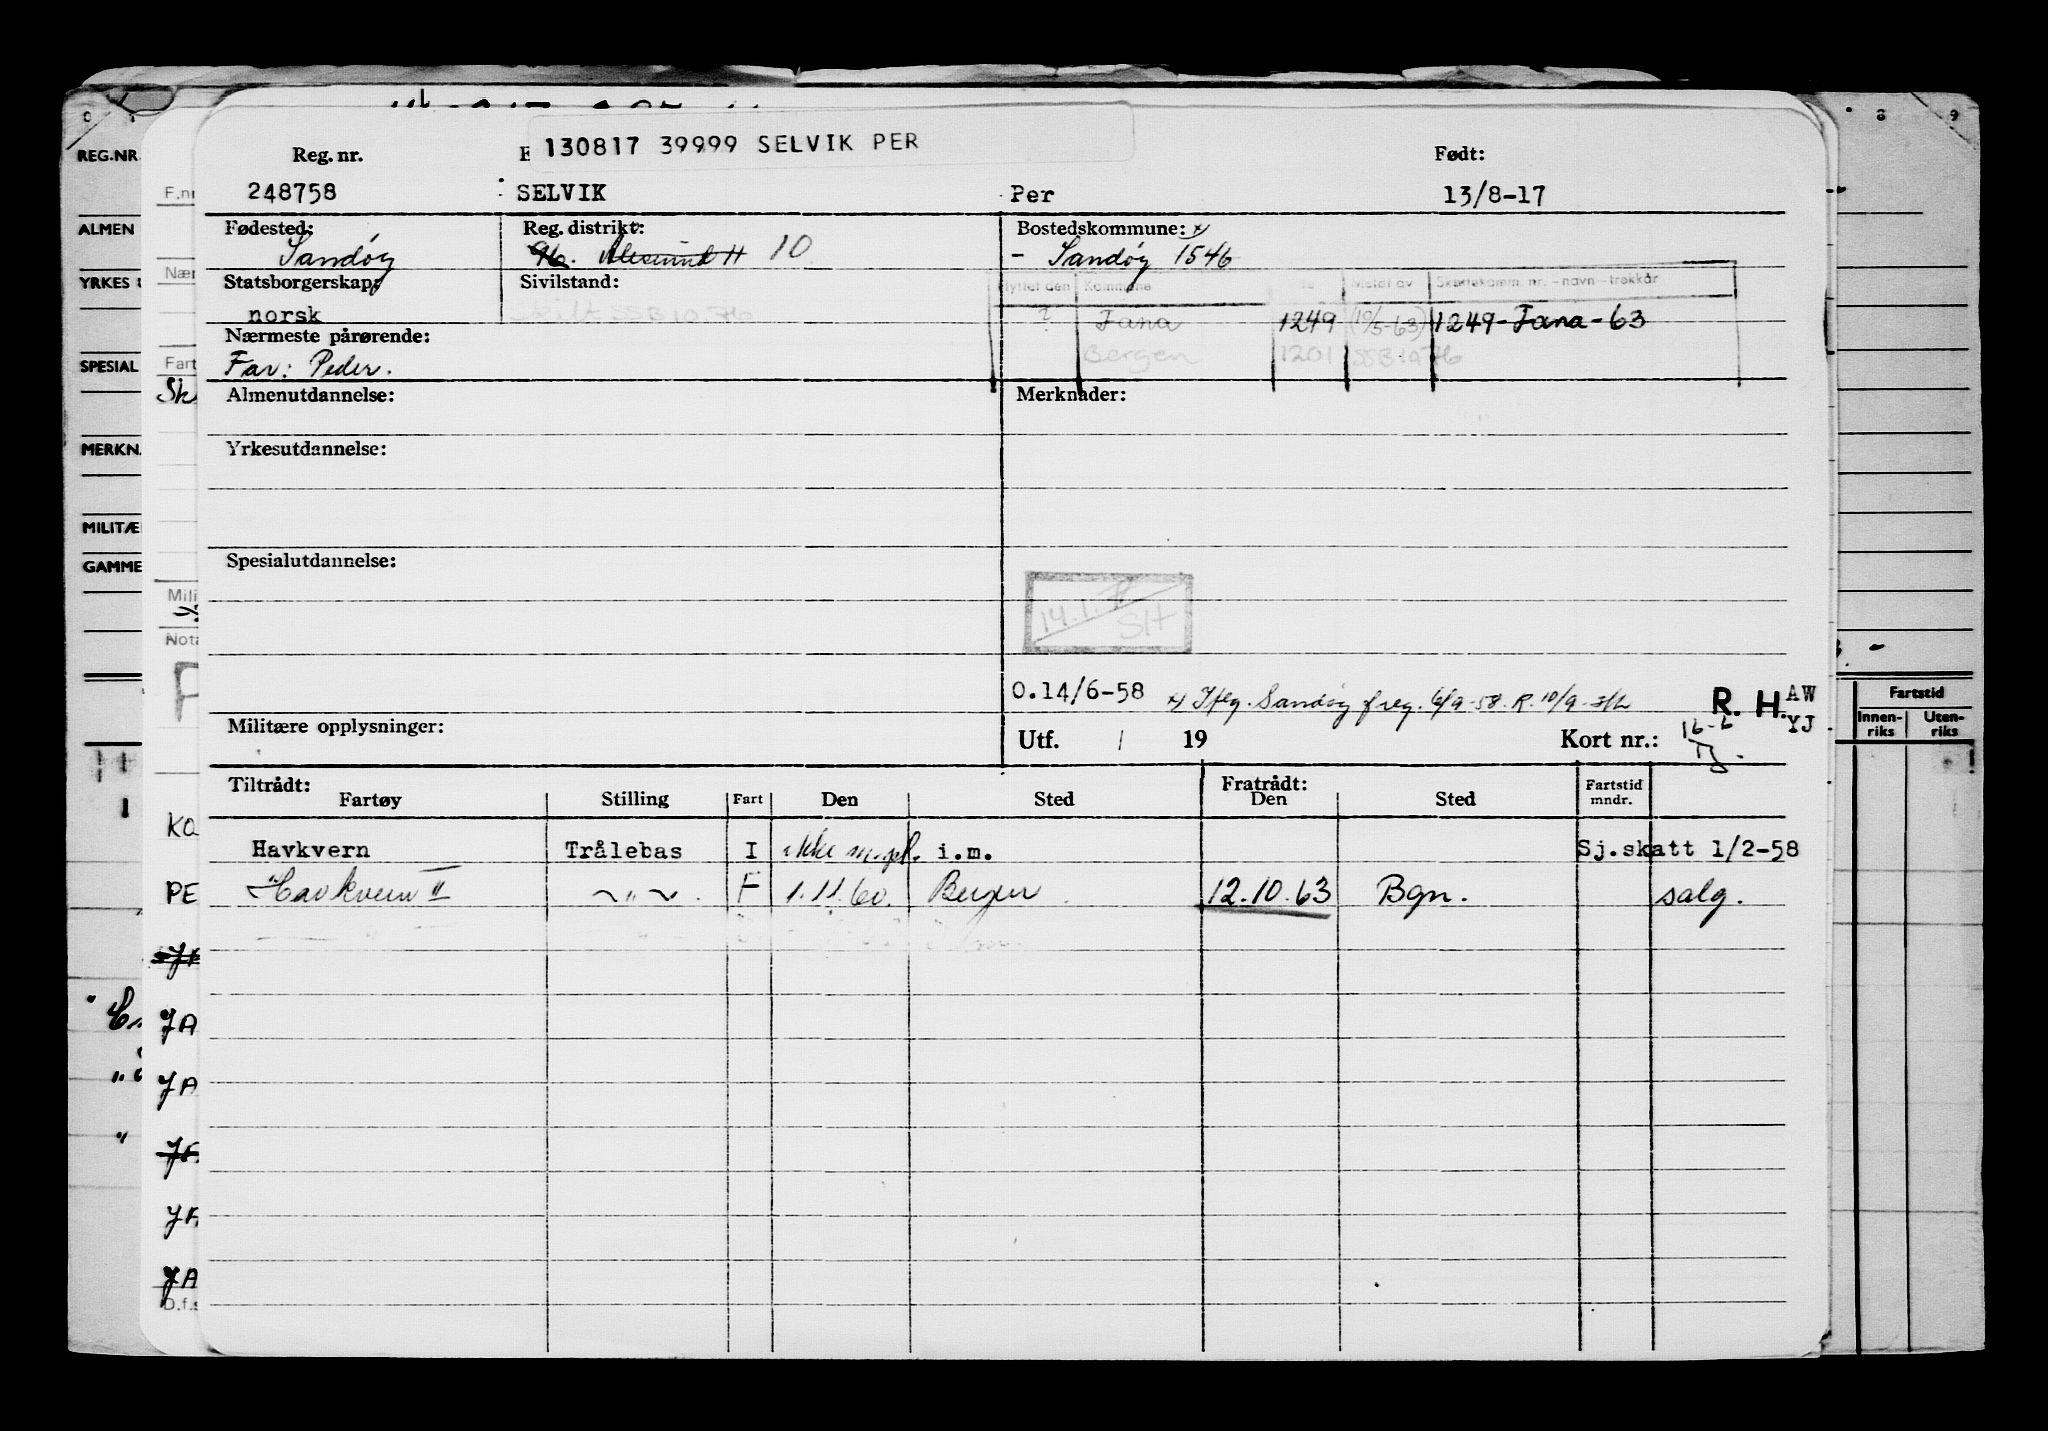 130817 39999 SELVIK PER
Reg. nr. Født:
248758 SELVIK Per 13/8-17
Fødested: Reg. distrikt: Bostedskommune: x)
Sandøy 96. Ålesund H 10 - Sandøy 1546
Statsborgerskap: Sivilstand: Flyttet den Kommune Meldt av Skattekomm. nr. - navn - trekkår
norsk skilt SSB 10.76 ? Fana 1249 (10/5-63) 1249-Fana-63
Nærmeste pårørende: Bergen 1201 SSB 10 76
Far: Peder.
Almenutdannelse: Merknader:
Yrkesutdannelse:
Spesialutdannelse:
14.1.
SH
O.14/6-58 x) Iflg. Sandøy freg. 6/9-58. R. 10/9 R. H. AW
YJ
Militære opplysninger: Utf. / 19 Kort nr.: 16-6
Tiltrådt: Fratrådt:
Fartøy Stilling Fart Den Sted Den Sted Fartstid mndr.
Havkvern Trålebas I ikke i.m. Sj.skatt 1/2-58
"Havkvern II" — " — F 1.11.60. Bergen 12.10.63 Bgn. salg.
REG.NR.
ALMEN
YRKES
SPESIAL
MERKN.
MILITÆ
GAMME
F.nr
Nær
Fart
Sk
Mili
Nota
KO
PE
JA
JA
JA
D.f.s
8 9
Fartstid
Innen-riks Uten-riks